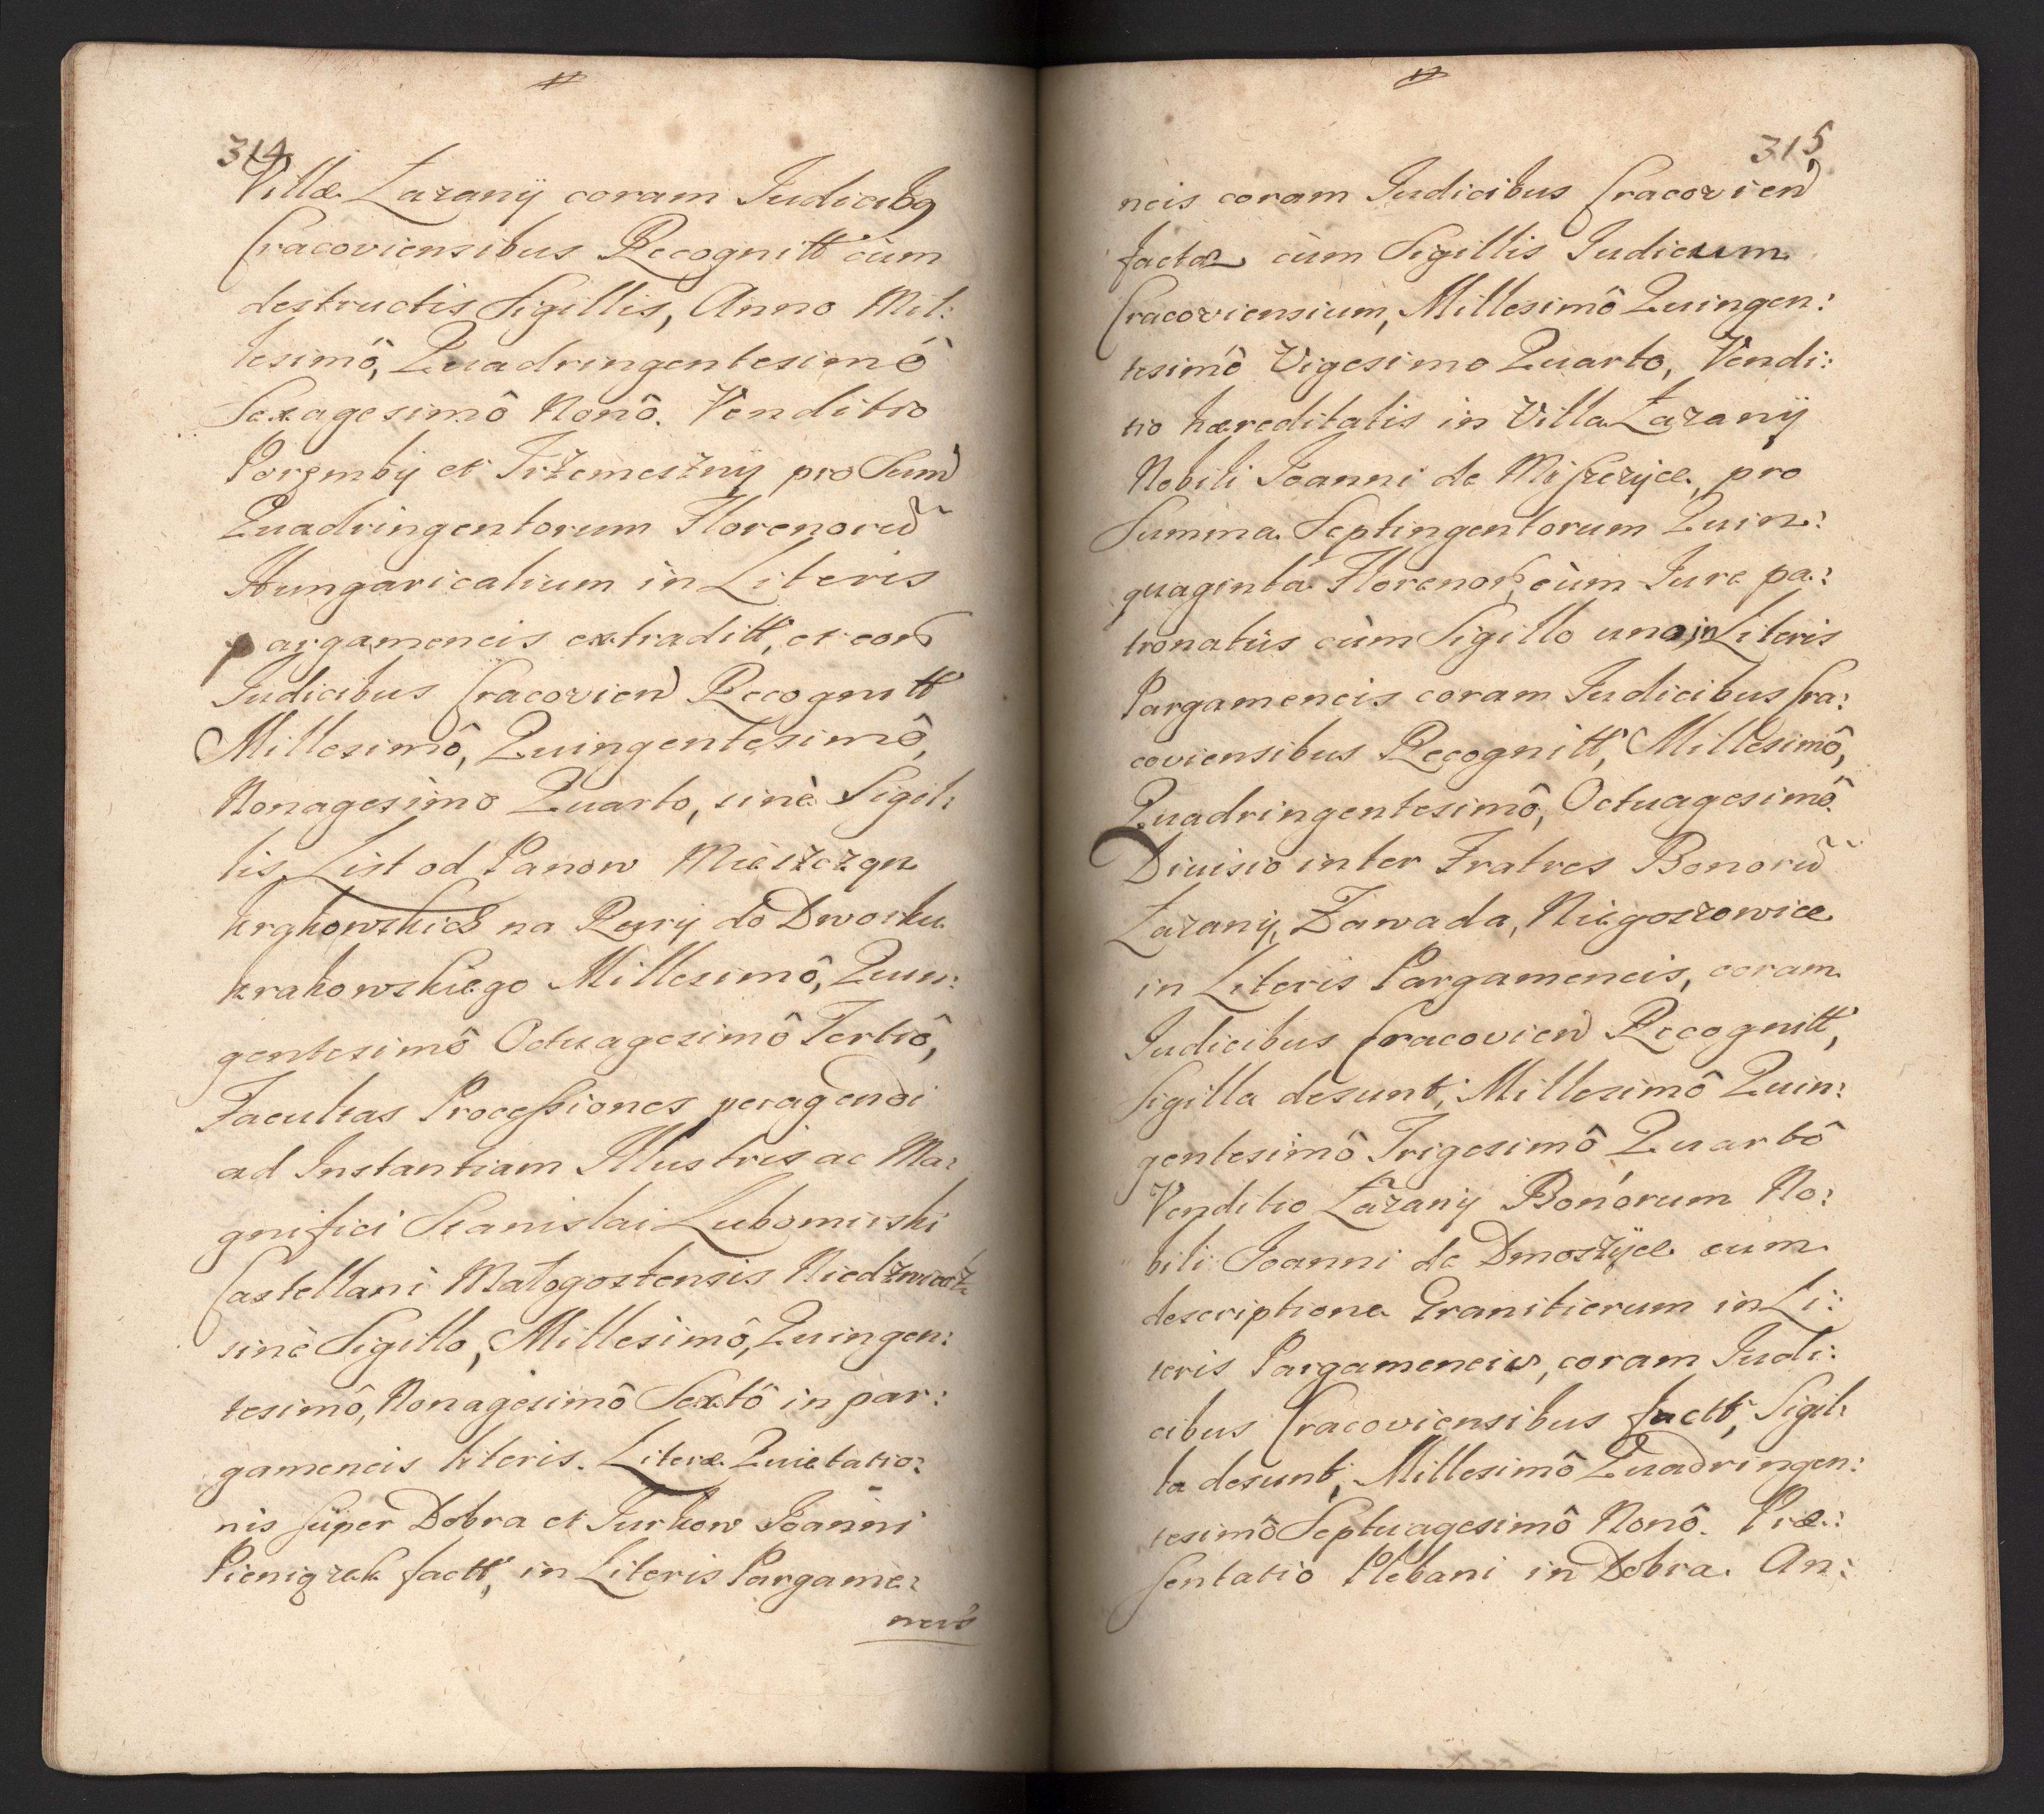 314
Villæ Łazany coram Judicibq
Cracoviensibus Recognitt cùm
destructis Sigillis, Anno Mil:
lesimô, Quadringentesimô
Sexagesimô Nonô. Venditio
Poręmby et Trzemeszny pro Sum
Quadringentorum Florenorũ
Hungaricalium in Literis
pargameneis extraditt, et cor
Judicibus Cracovien Recognitt
Millesimô, Quingentesimô,
Nonagesimo Quarto, sinè Sigil:
lis, List od Panow Mieszczqn
krakowskich na Rury do Dworku
krakowskiego Millesimô, Quin:
gentesimô Octuagesimô Tertiô,
Facultas Processiones peragendi
ad Instantiam Illustris ac Ma:
gnifici Stanislai Lubomirski
Castellani Małogostensis
sinè Sigillo, Millesimô, Quingen:
tesimô, Nonagesimô Sextô in par:
gameneis literis. Literæ Quietatio:
nis super Dobra et Jurkow Joanni
Pieniqzek factt, in Literis Pargame:
neis
315
neis coram Judicibus Cracovien
factæ cùm Sigillis Judicum
Cracoviensium, Millesimô Quingen:
tesimô Vigesimo Quarto, Vendi:
tio hæreditatis in Villa Łazany
Nobili Joanni de pro
Summa Septingentorum Quin:
quaginta Florenor, cùm Jure pa:
tronatùs cùm Sigillo uno, in Literis
Pargameneis coram Judicibus Cra:
coviensibus Recognitt, Millesimô,
Quadringentesimô, Octuagesimô.
Diuisio inter Fratres Bonorũ
Łazany, Zawada, Niegoszowice
in Literis Pargameneis, coram
Judicibus Cracovien Recognitt,
Sigilla desunt, Millesimô Quin:
gentesimô Trigesimô Quartô
Venditio Łazany Bonorum No:
bili Joanni de Dmoszyce cum
descriptione Granitierum in Li:
teris Pargameneis, coram Judi:
cibus Cracoviensibus factt, Sigil:
la desunt, Millesimô Quadringen:
tesimô Septuagesimô Nonô. Præ:
sentatio Plebani in Dobra. An: